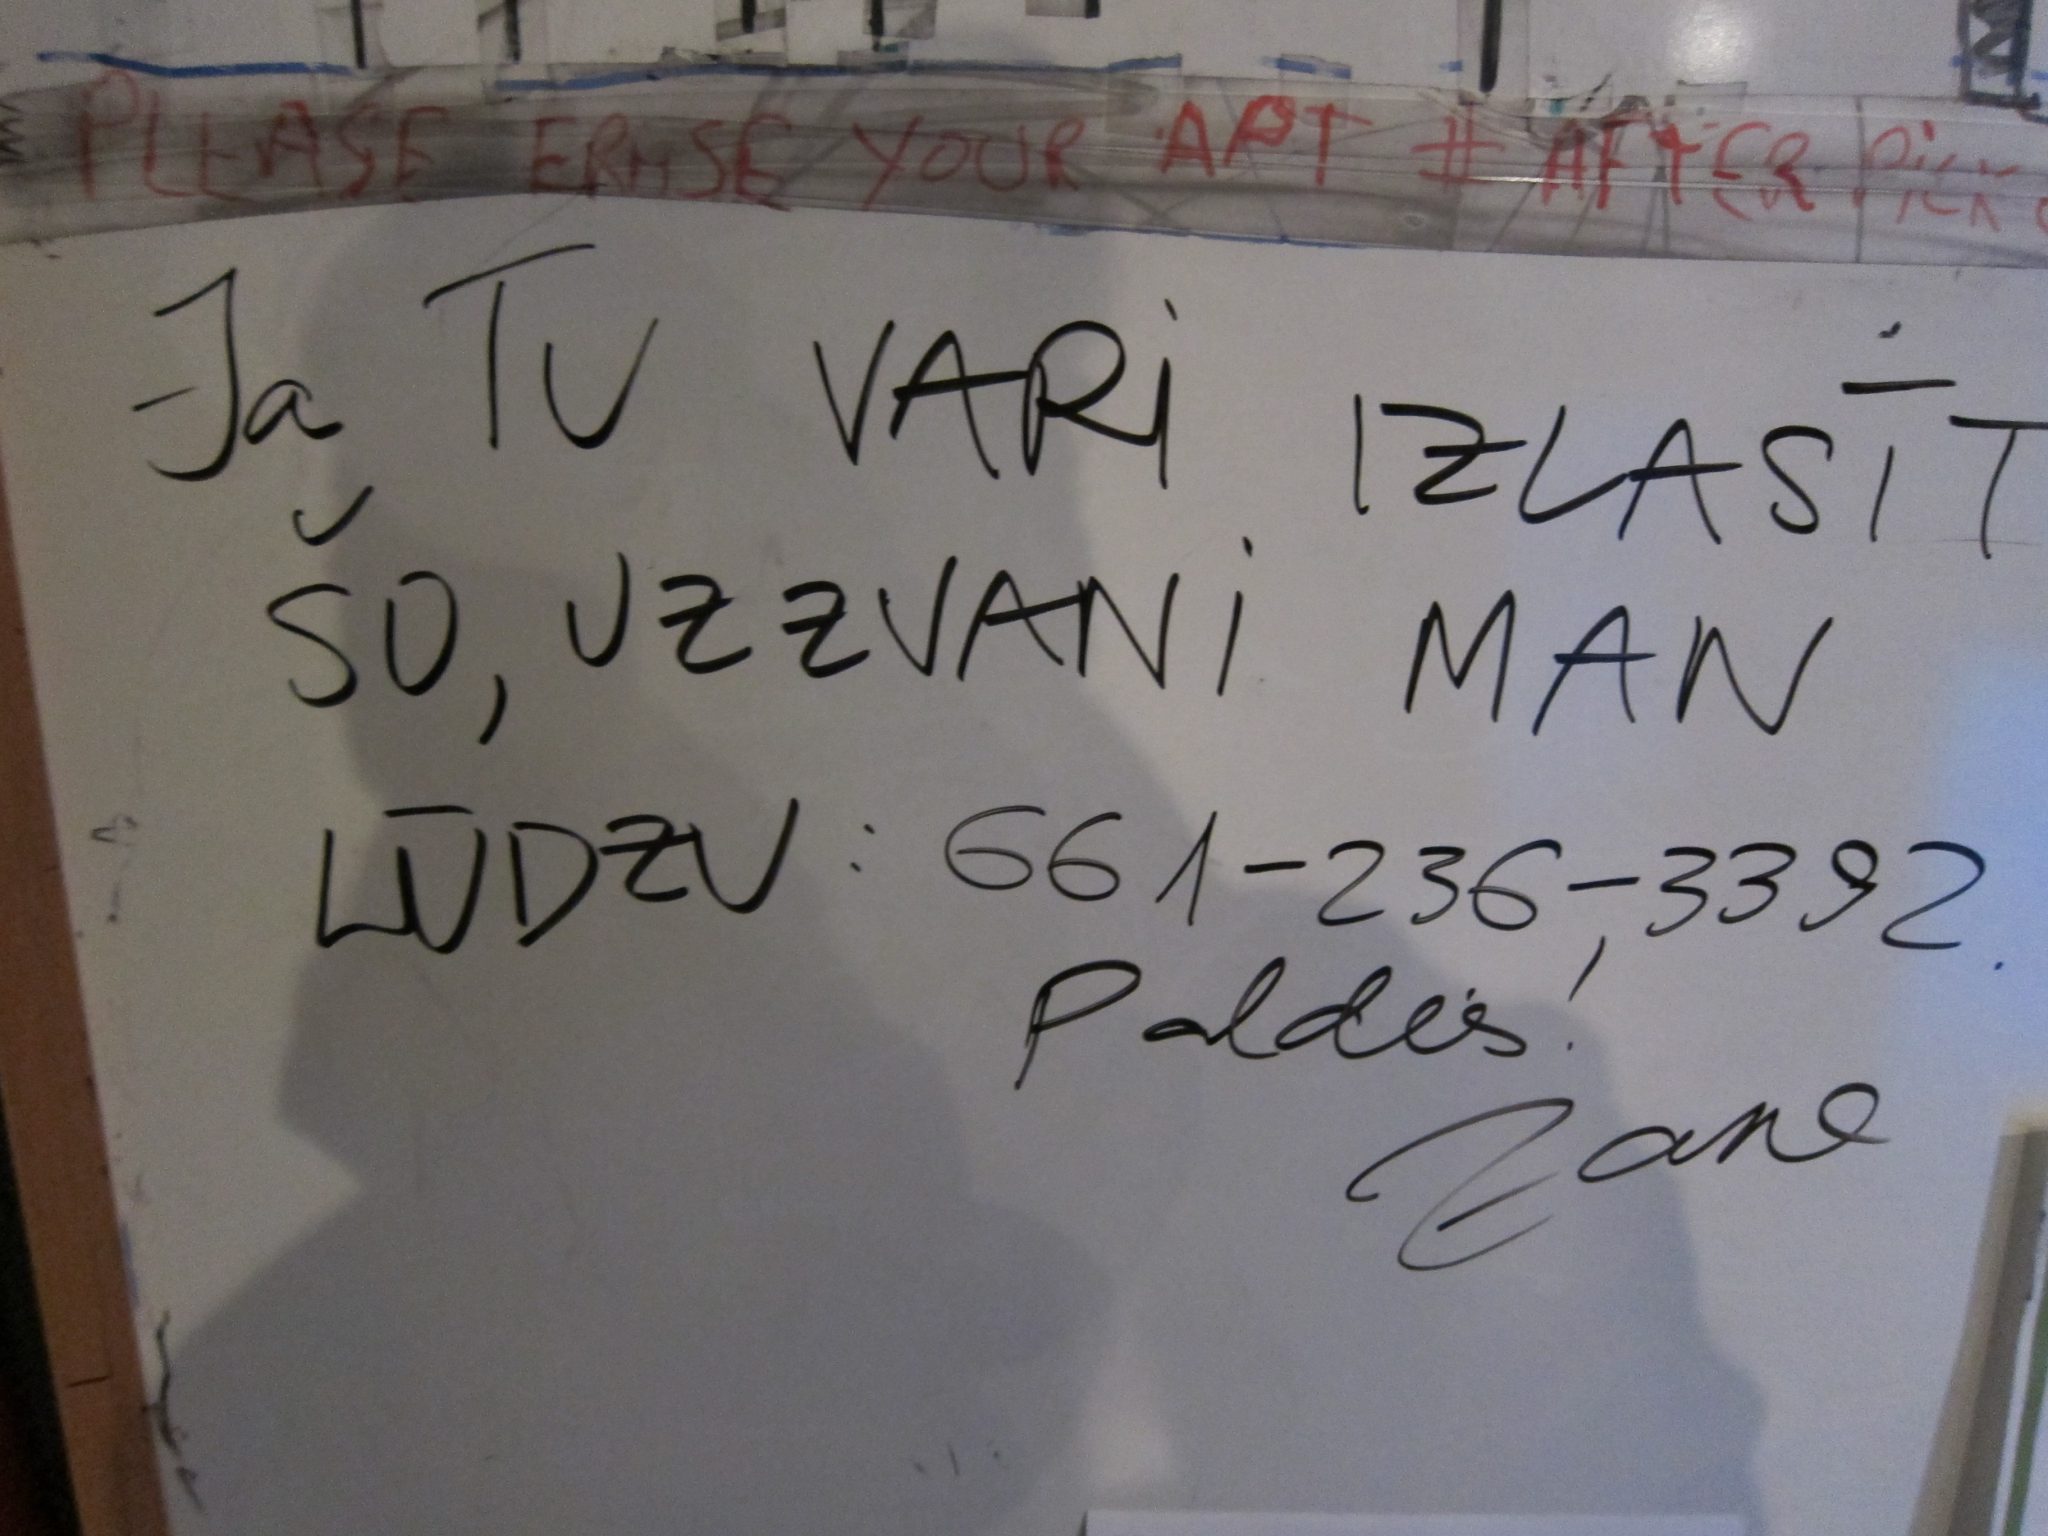 PLEASE ERASE YOUR APT # AFTER PICK
Ja TU VARi IZLASĪT
ŠO, UZZVANi MAN
LŪDZU: 661-236-3392.
Paldies!
Zane